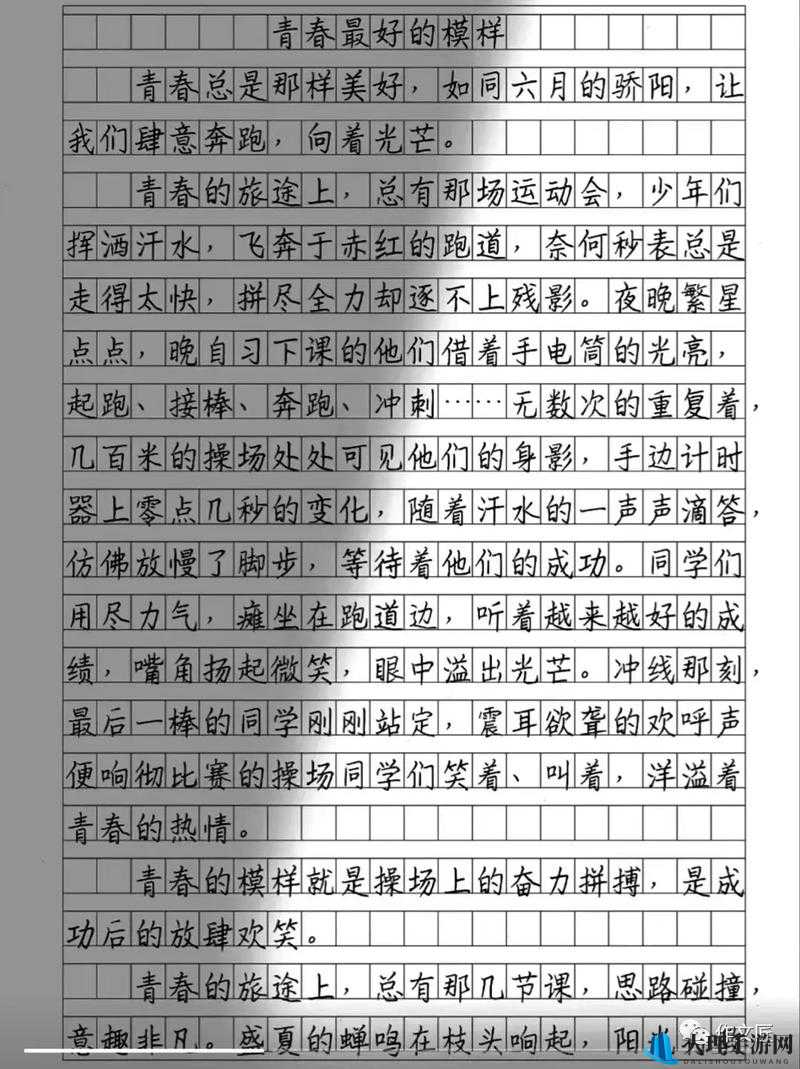 青春最好的模样
青春总是那样美好，如同六月的骄阳，让
我们肆意奔跑，向着光芒。
青春的旅途上，总有那场运动会，少年们
挥洒汗水，飞奔于赤红的跑道，奈何秒表总是
走得太快，拼尽全力却逐不上残影。夜晚繁星
点点，晚自习下课的他们借着手电筒的光亮，
起跑、接棒、奔跑、冲刺……无数次的重复着，
几百米的操场处处可见他们的身影，手边计时
器上零点几秒的变化，随着汗水的一声声滴答，
仿佛放慢了脚步，等待着他们的成功。同学们
用尽力气，瘫坐在跑道边，听着越来越好的成
绩，嘴角扬起微笑，眼中溢出光芒。冲线那刻，
最后一棒的同学刚刚站定，震耳欲聋的欢呼声
便响彻比赛的操场同学们笑着、叫着，洋溢着
青春的热情。
青春的模样就是操场上的奋力拼搏，是成
功后的放肆欢笑。
青春的旅途上，总有那几节课，思路碰撞，
意趣非凡。盛夏的蝉鸣在枝头响起，阳光
作文匠
大理手游网
DALISHOUYOUWANG